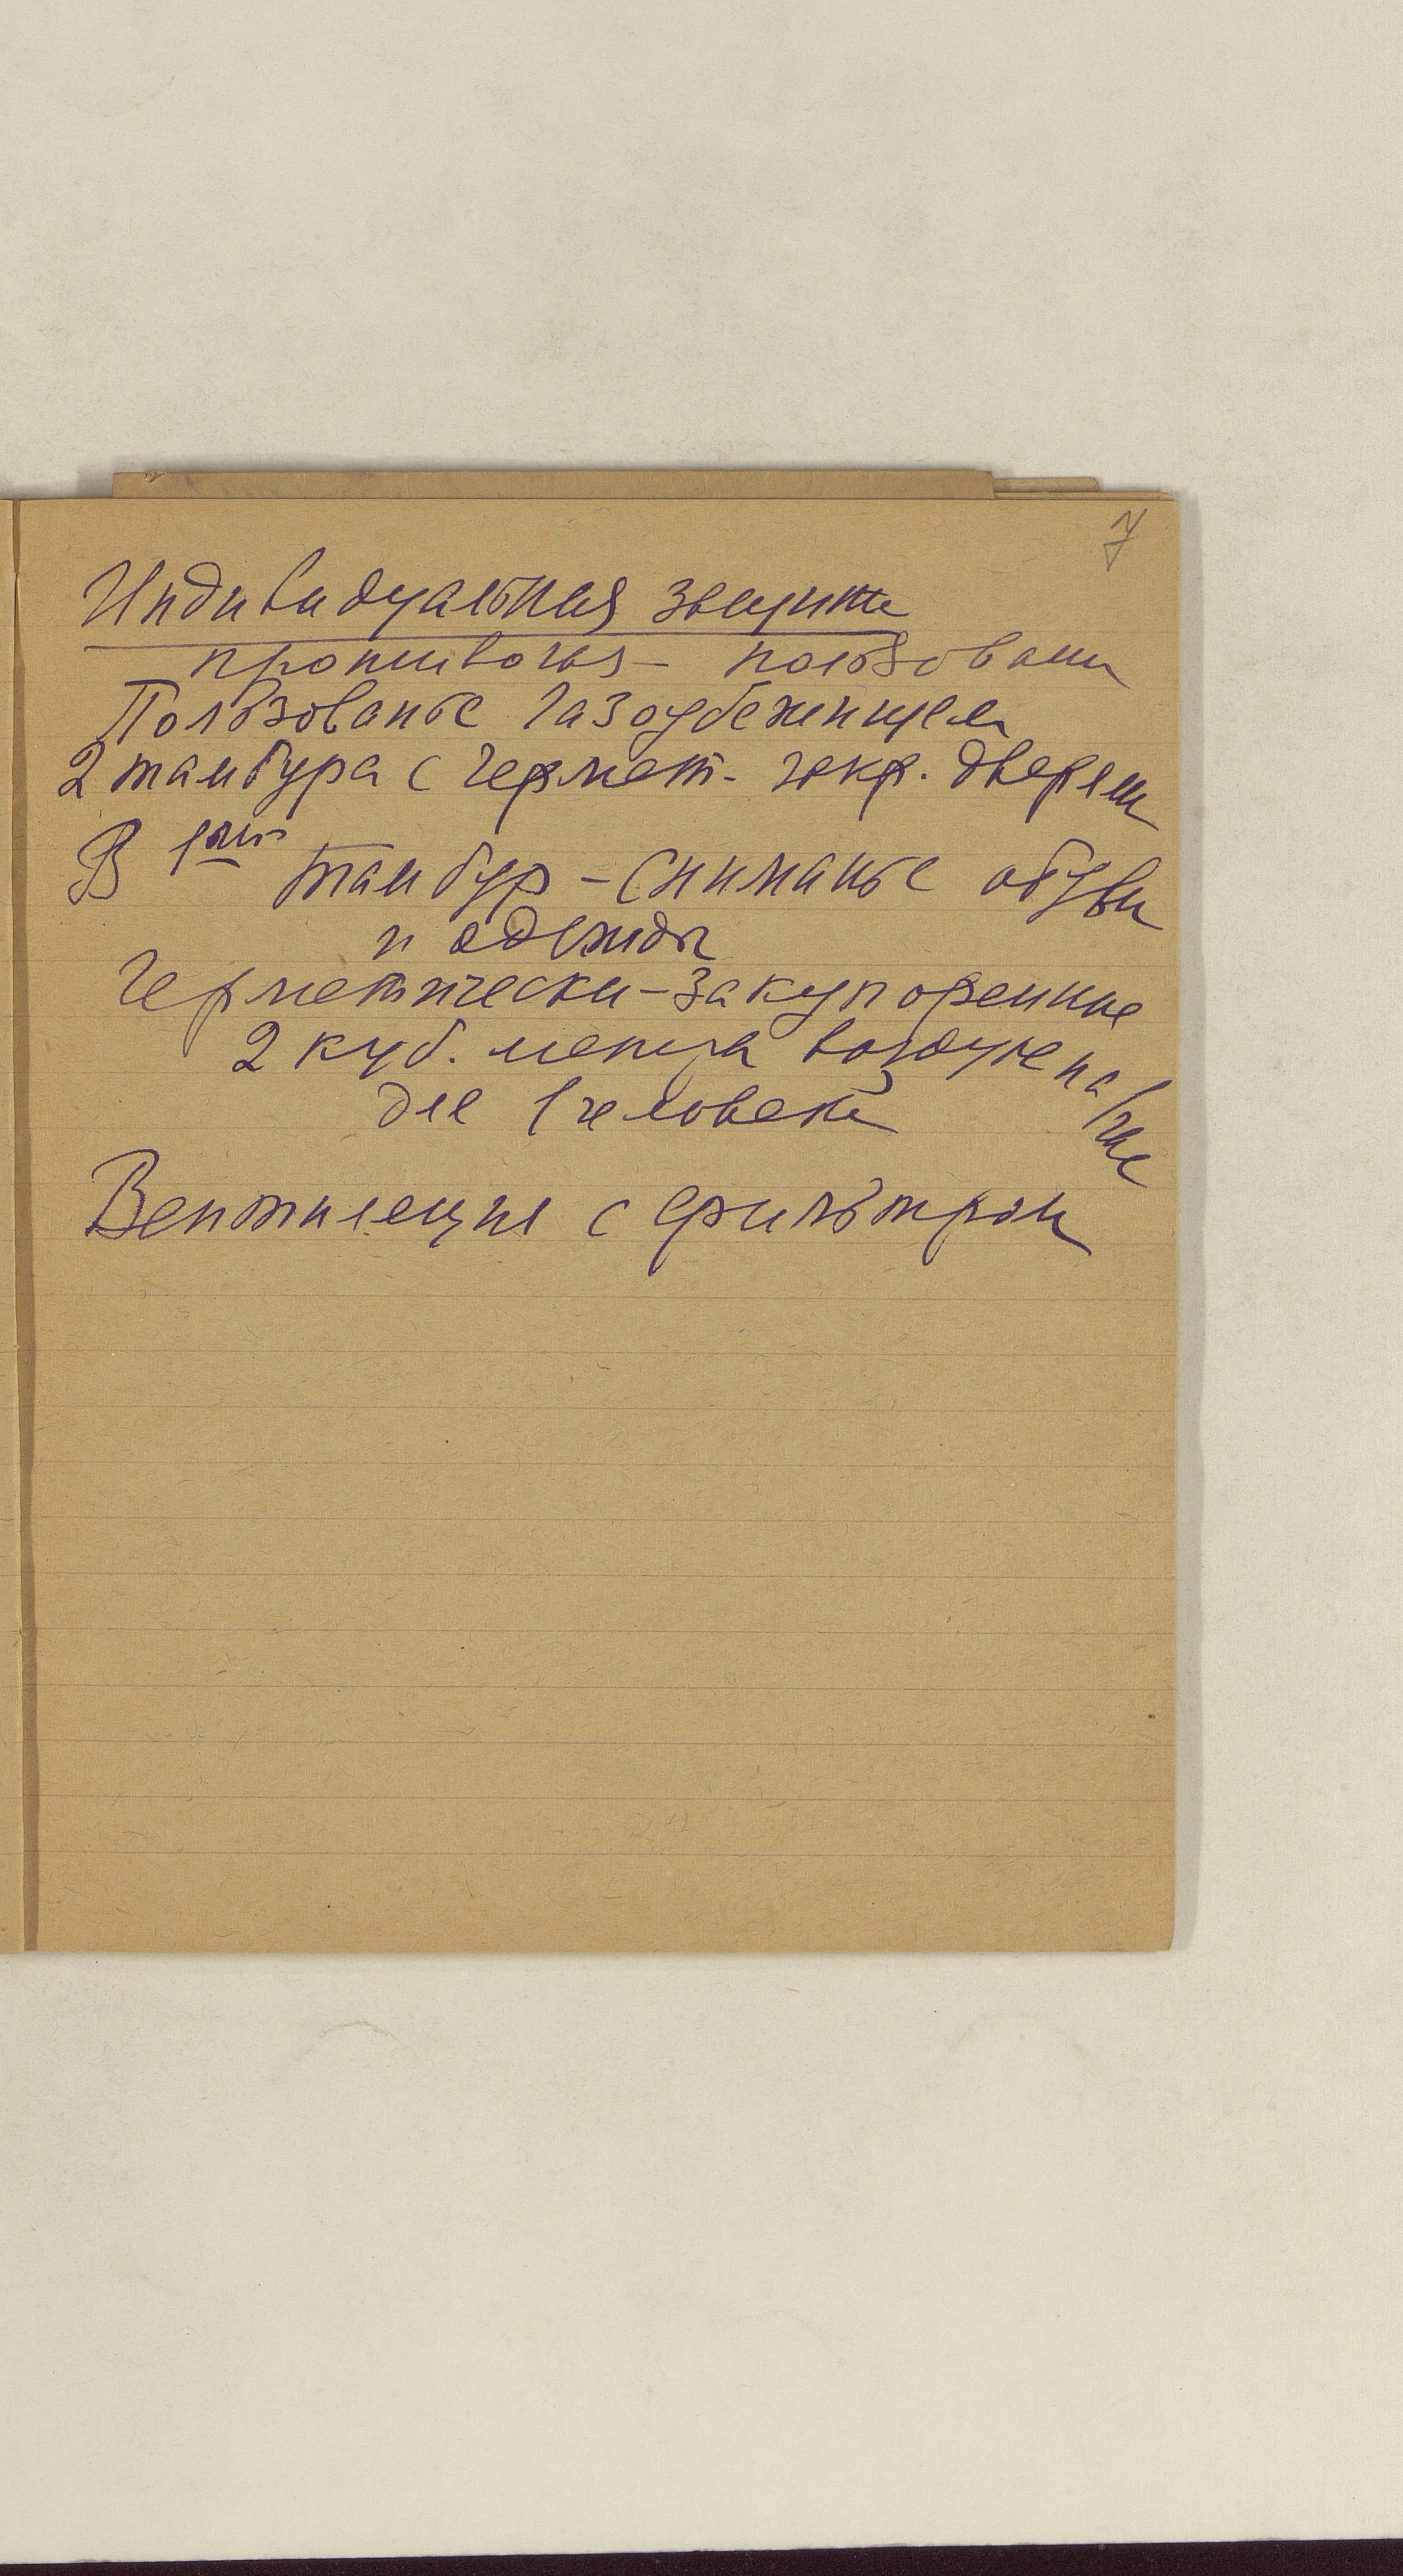 7
Индивидуальная защита
противогаз – пользован
Пользованье газоубежищем
2 тамбура с гермет. закр. дверями
В 1ый тамбур – сниманье обуви
и одежды
Герметически – закупоренные
2 куб. метра воздуха на 1 час
для 1 человека
Вентиляция с фильтром